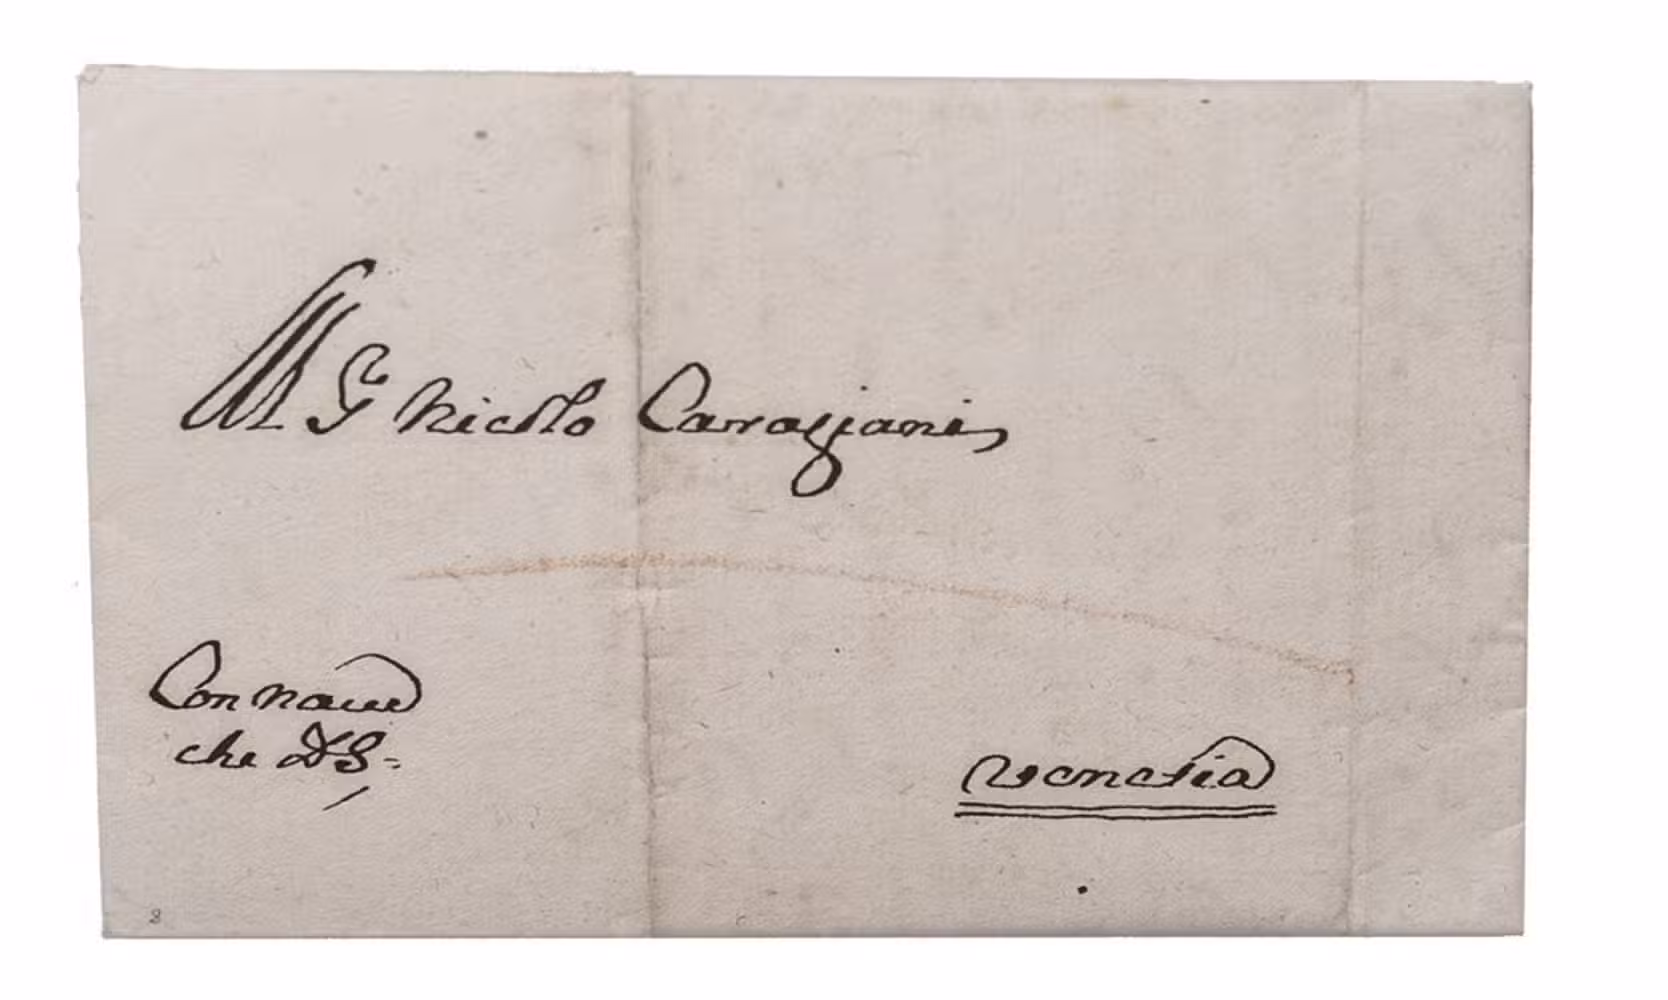 Al Sr Nicolo Caragiani
Con Naue
che D S=
Venetia
8